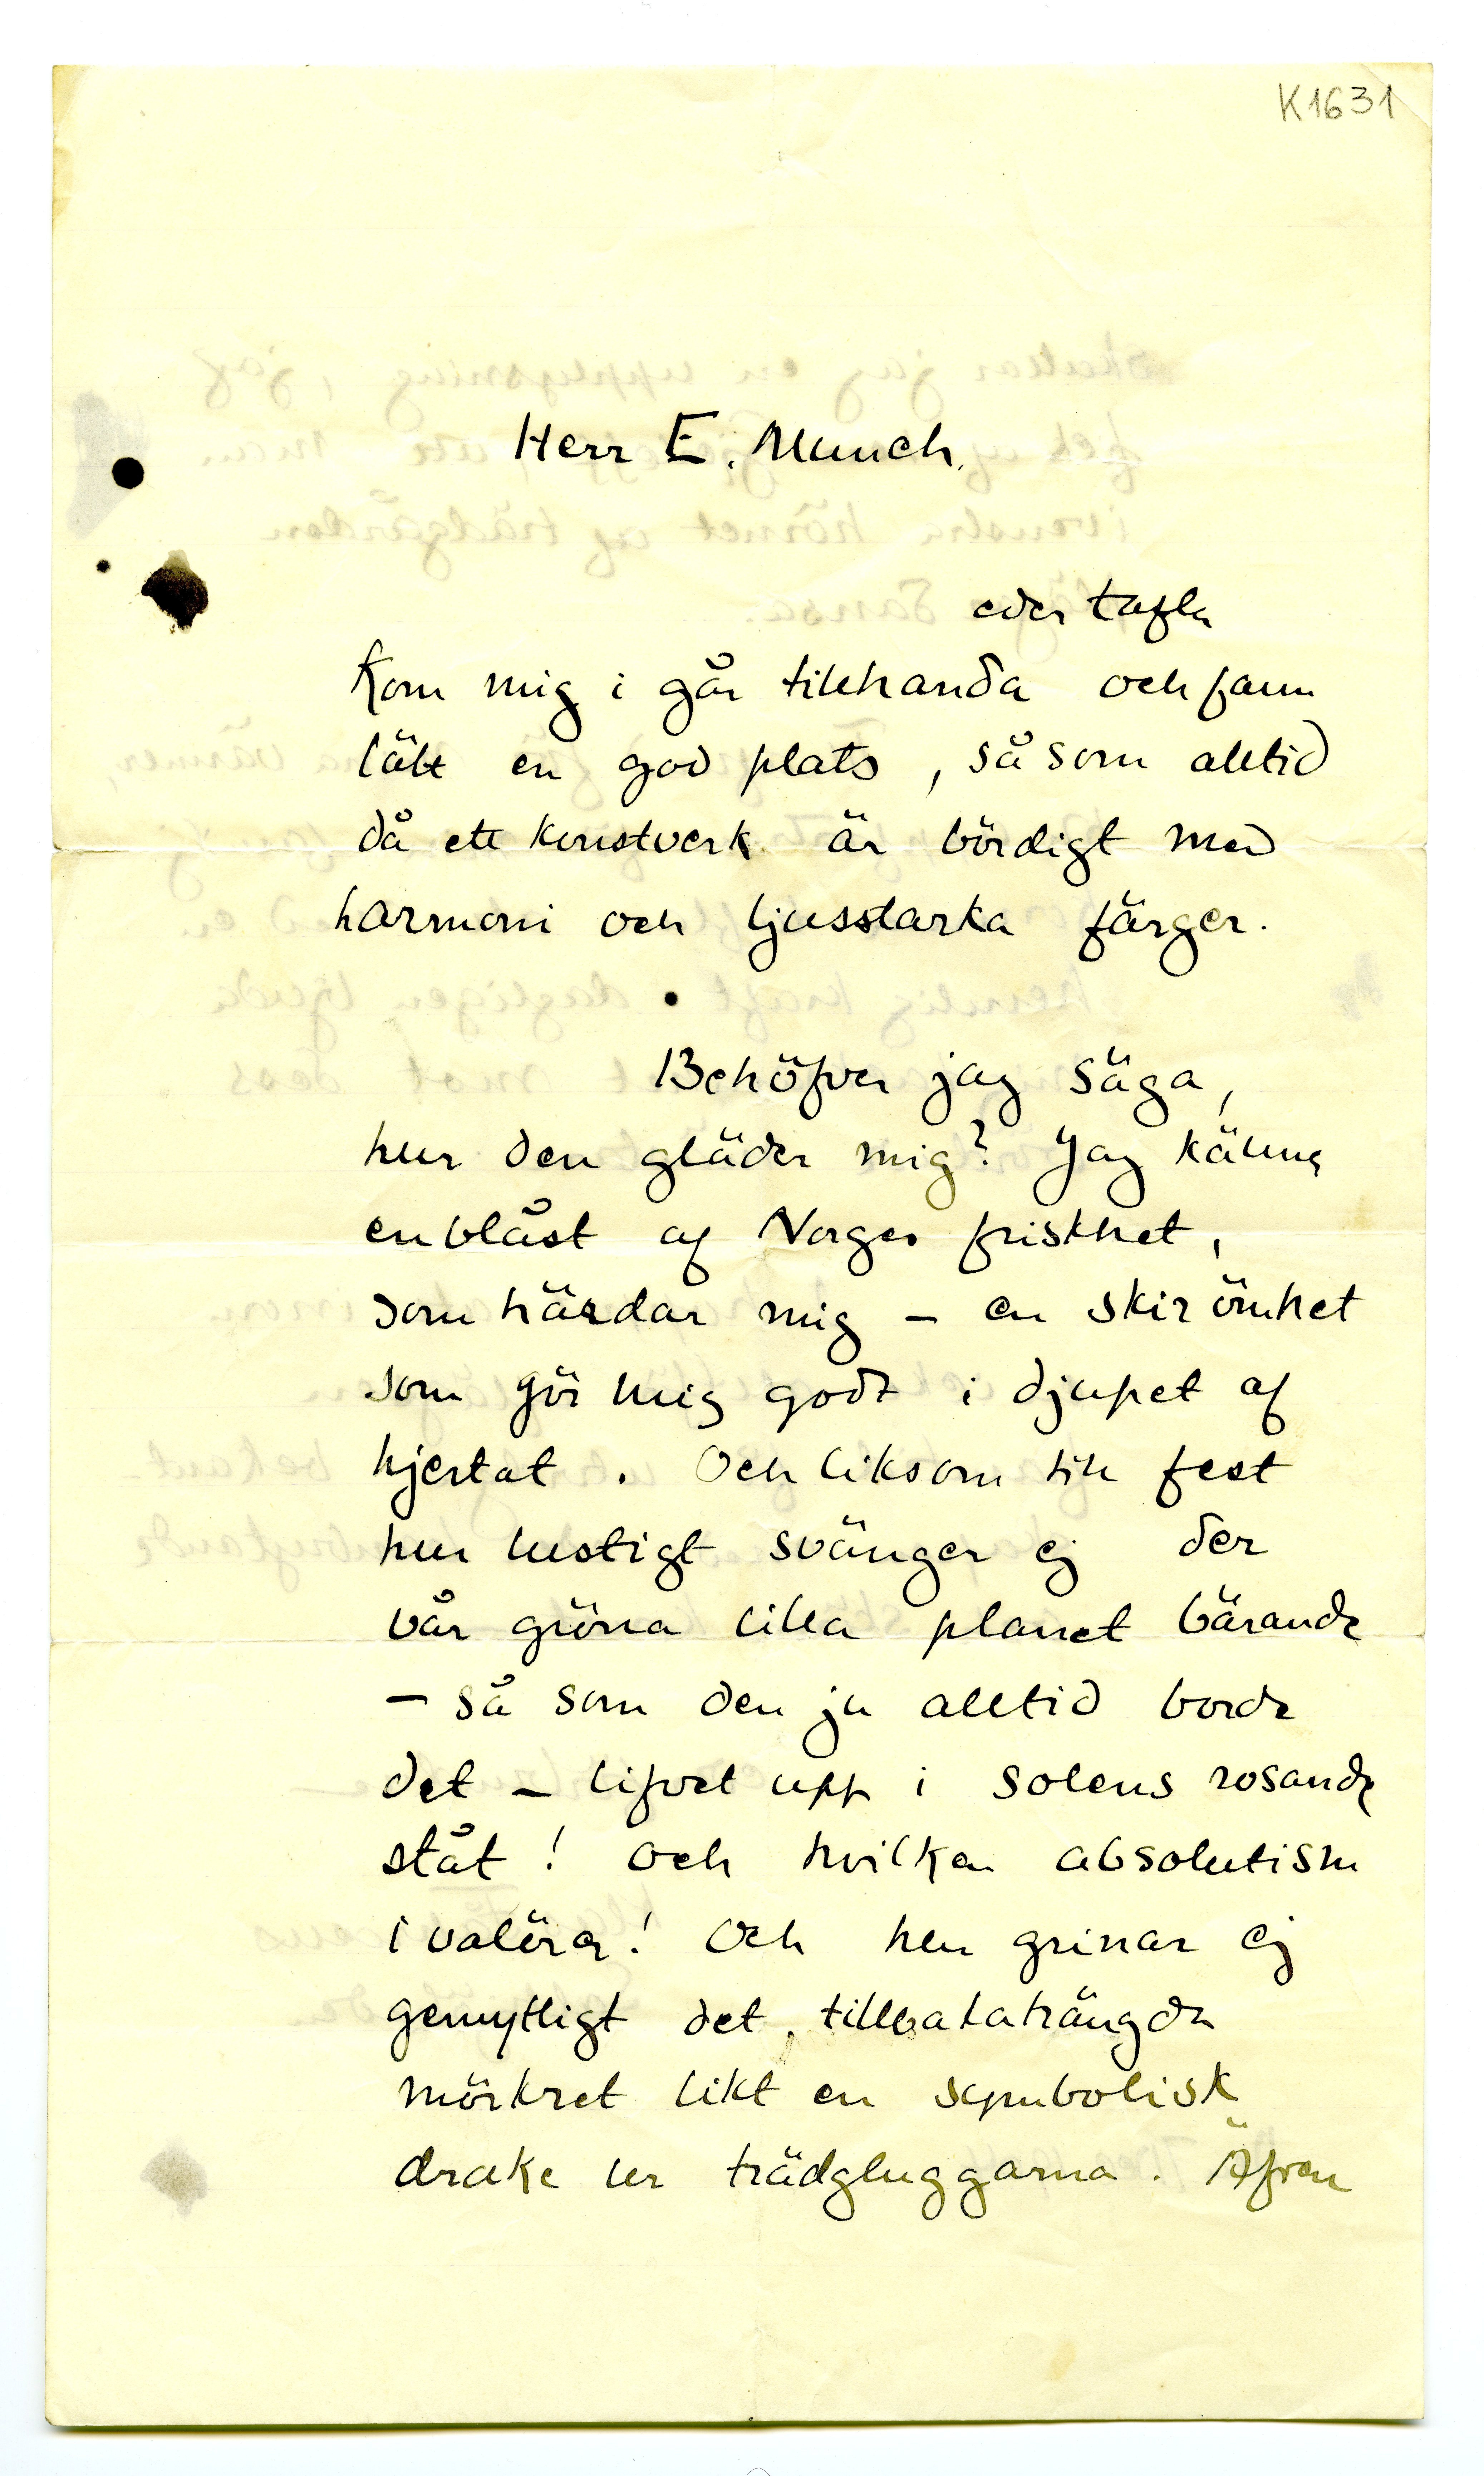 K1631
Herr E. Munch.
eder tafla
kom mig i går tillhanda och fann
lätt en god plats, såsom alltid
då ett konstverk är bördigt med
harmoni och ljusstarka färger.
Behöfver jag säga,
hur den gläder mig? Jag känner
en blåst af Norges friskhet,
som härdar mig – en skir ömhet
som gör mig godt i djupet af
hjertat. Och liksom till fest
hur lustigt svänger ej der
vår gröna lilla planet bärande
– så som den ju alltid borde
det – lifvet upp i solens rosande
ståt! Och hvilken absolutism
i valörer! Och hur grinar ej
gemytligt det tillbakaträngda
mörkret likt en symbolisk
drake ur trädgluggarna. Äfven